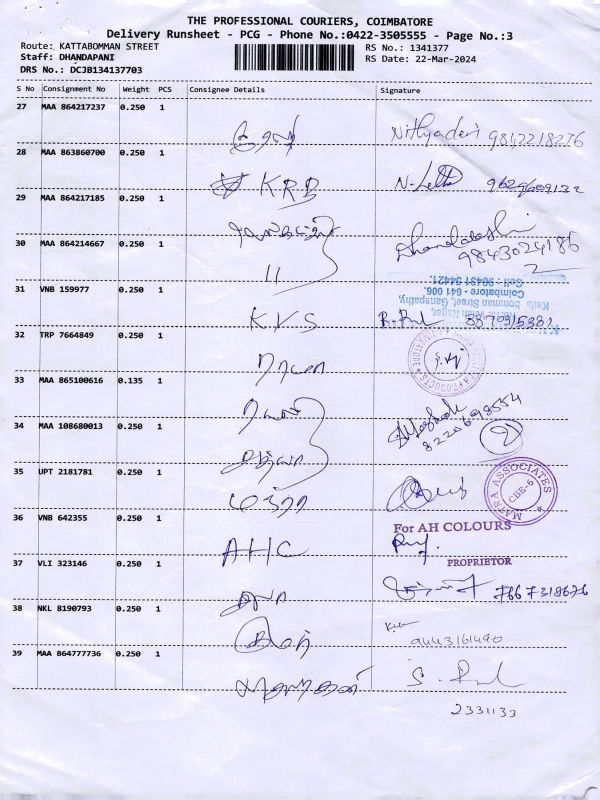 THE PROFESSIONAL COURIERS, COIMBATORE
Delivery Runsheet - PCG - Phone No.:0422-3505555 - Page No.:3
Route: KATTABOMMAN STREET
RS No.: 1341377
Staff: DHANDAPANI
RS Date: 22-Mar-2024
DRS No.: DCJB134137703
S No Consignment No Weight PCS Consignee Details Signature
27 MAA 864217237 0.250 1
Nithyadevi 9842218276
28 MAA 863860700 0.250 1
K.R.B
29 MAA 864217185 0.250 1
Dhandabashi
9843024186
30 MAA 864214667 0.250 1
11
Cell : 90431 54421.
Coimbatore - 641 006.
Katta bomman Street, Ganapathy,
31 VNB 159977 0.250 1
KVS 8870315381
32 TRP 7664849 0.250 1
33 MAA 865100616 0.135 1
34 MAA 108680013 0.250 1
8220698554
2
35 UPT 2181781 0.250 1
MAITRA ASSOCIATES
CBE-6
36 VNB 642355 0.250 1
For AH COLOURS
AHC
PROPRIETOR
37 VLI 323146 0.250 1
7667318676
38 NKL 8190793 0.250 1
9443161490
39 MAA 864777736 0.250 1
2331133